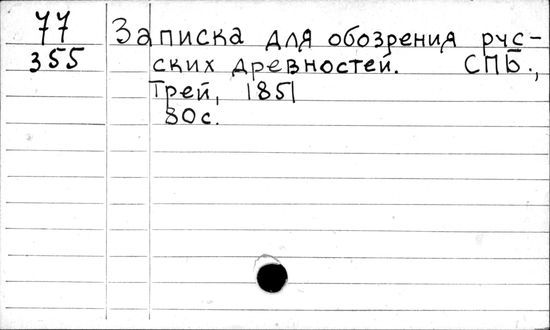 77 Записка для обозрения рус-
355 ских древностей. СПБ.,
Трей, 1851
80 с.